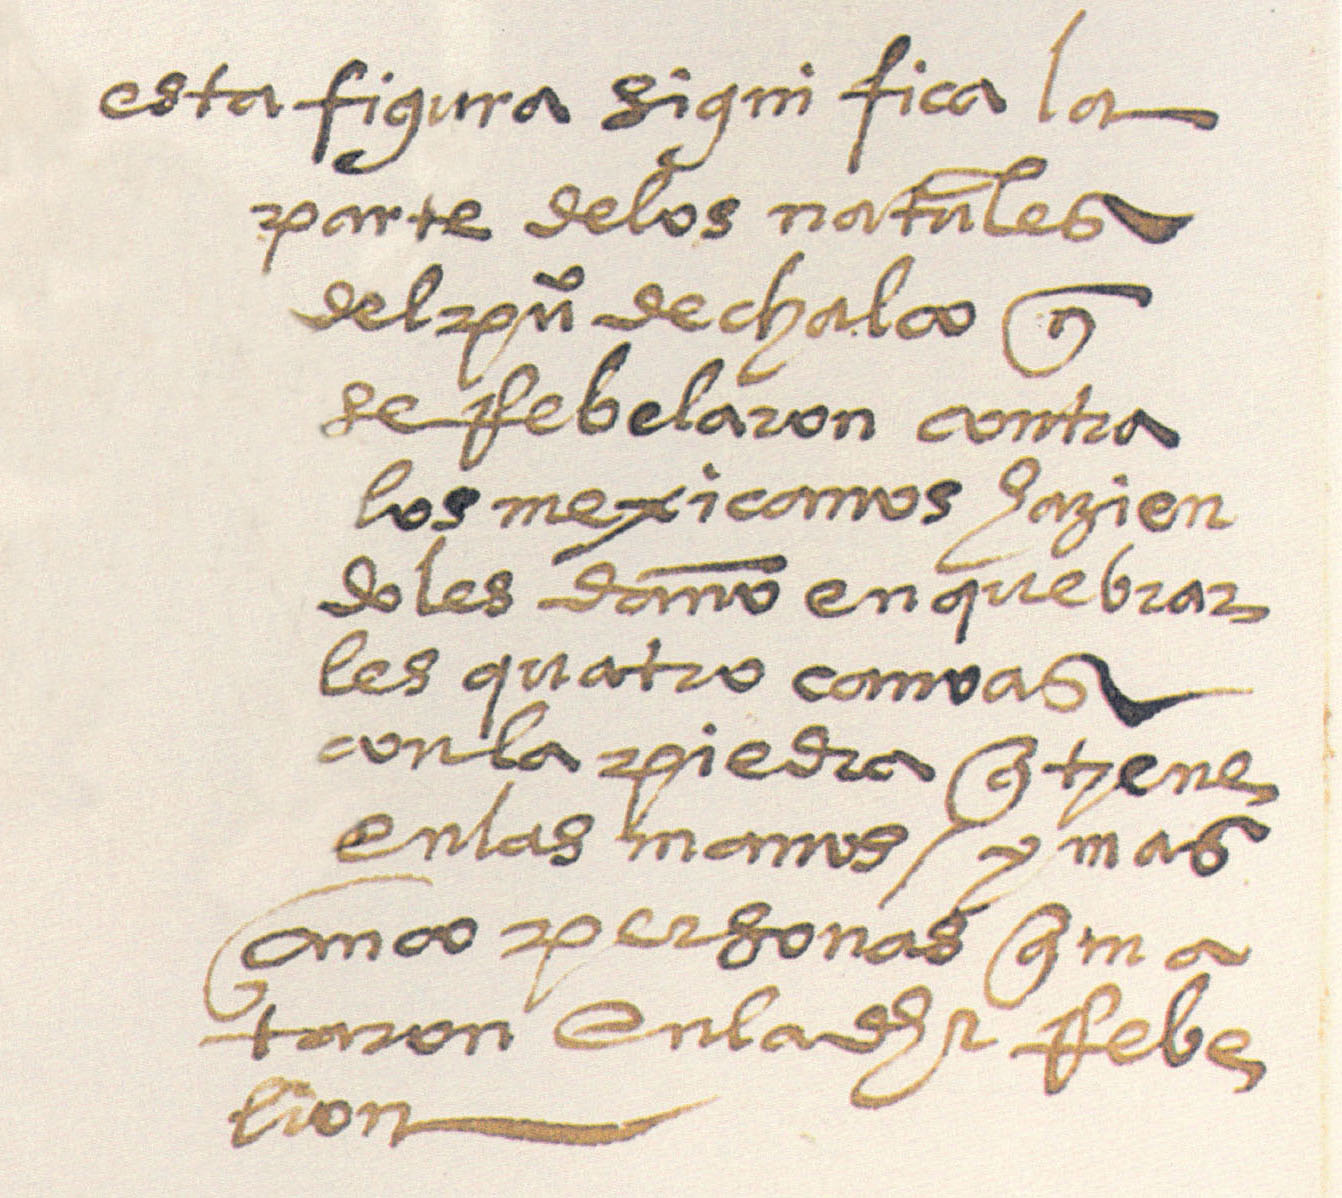 esta figura significa la
parte delos natales
del pũo de chalco q̃
se Rebelaron contra
los mexicanos hazien
doles daño en quebrar
les quatro canoas
con la piedra q̃ tiene
en las manos / y mas
cinco personas q̃ ma
taron en la dhã Rebe
lion